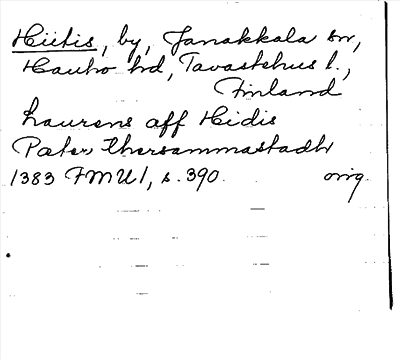 Hiitis, by, Janakkala sn,
Hauho hd, Tavastehus l.,
Finland
Laurens aff Hidis
Pæter Thersammastadh
1383 FMU 1, s. 390. orig.